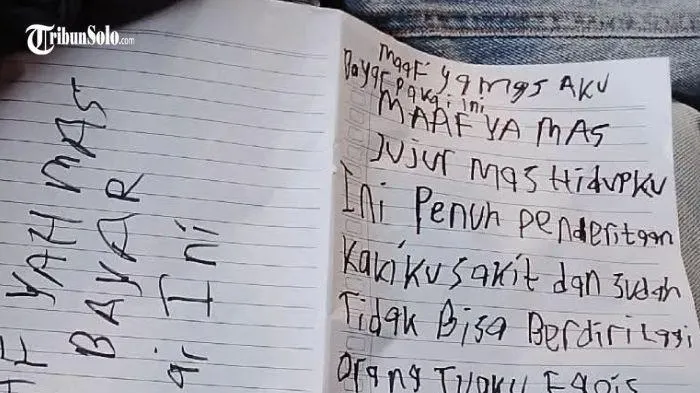 TribunSolo.com
YAH MAS
BAYAR
Ini
MaaF Ya mas AKU
Bayar Pakai ini
MAAF YA MAS
Jujur mas Hidupku
Ini Penuh Penderitaan
Kakiku sakit dan sudah
Tidak Bisa Berdiri lagi
Orang Tuaku Egois